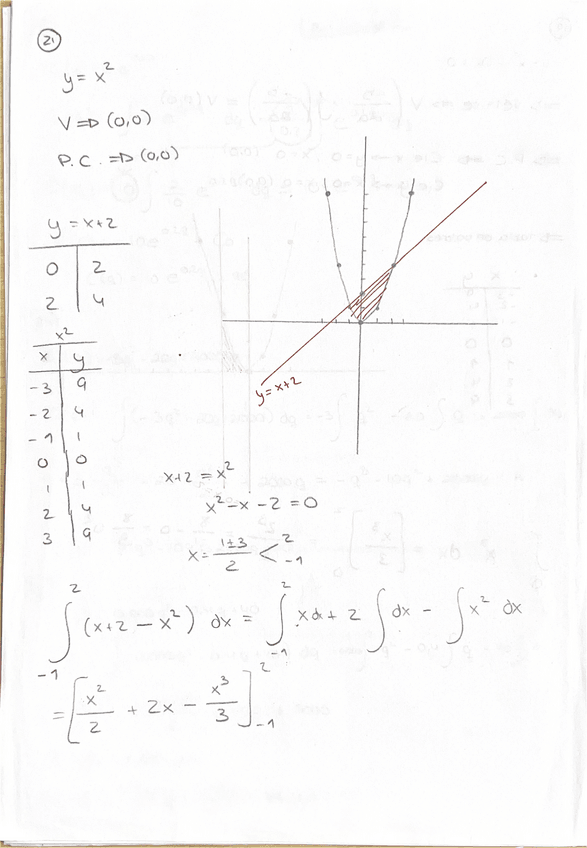 21
y = x²
V ⇒ (0,0)
P.C. ⇒ (0,0)
y = x+2
0 | 2
2 | 4
x²
x | y
-3 | 9
-2 | 4
-1 | 1
0 | 0
1 | 1
2 | 4
3 | 9
y = x+2
x+2 = x²
x² - x - 2 = 0
x = (1±3)/2 < 2, -1
∫₋₁² (x+2 - x²) dx = ∫₋₁² x dx + 2 ∫ dx - ∫ x² dx
= [x²/2 + 2x - x³/3]₋₁²